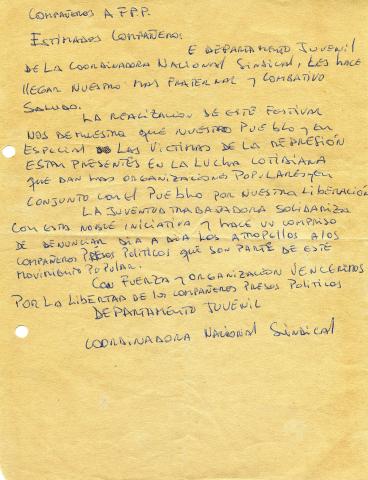 COMPAÑEROS A F.P.P.
ESTIMADOS COMPAÑEROS:
E DEPARTAMENTO JUVENIL
DE LA COORDINADORA NACIONAL SINDICAL, LES HACE
LLEGAR NUESTRO MAS FRATERNAL Y COMBATIVO
SALUDO.
LA REALIZACION DE ESTE FESTIVAL
NOS DEMUESTRA QUE NUESTRO PUEBLO Y EN
ESPECIAL LAS VICTIMAS DE LA REPRESIÓN
ESTAN PRESENTES EN LA LUCHA COTIDIANA
QUE DAN LAS ORGANIZACIONES POPULARES Y EN
CONJUNTO CON EL PUEBLO POR NUESTRA LIBERACIÓN
LA JUVENTUD TRABAJADORA SOLIDARIZA
CON ESTA NOBLE INICIATIVA Y HACE UN COMPROMISO
DE DENUNCIAR DIA A DIA LOS ATROPELLOS A LOS
COMPAÑEROS PRESOS POLITICOS QUE SON PARTE DE ESTE
MOVIMIENTO POPULAR.
CON FUERZA Y ORGANIZACION VENCEREMOS
POR LA LIBERTAD DE LOS COMPAÑEROS PRESOS POLITICOS
DEPARTAMENTO JUVENIL
COORDINADORA NACIONAL SINDICAL